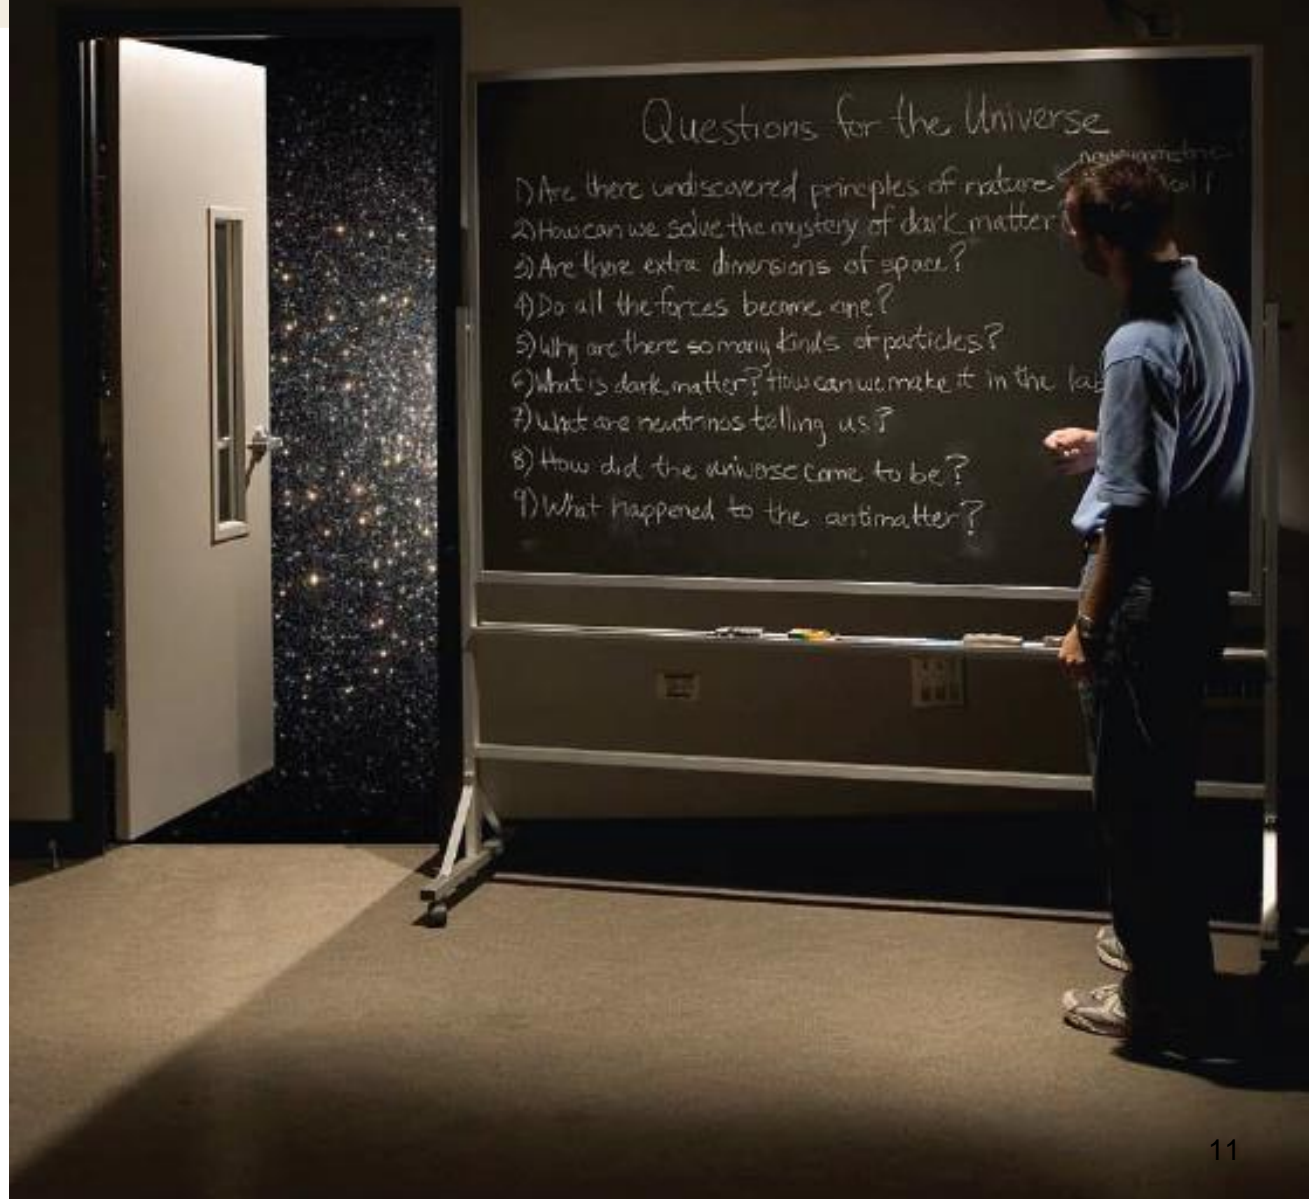 Questions for the Universe
1) Are there undiscovered principles of nature
2) How can we solve the mystery of dark matter
3) Are there extra dimensions of space?
4) Do all the forces become one?
5) Why are there so many kinds of particles?
6) What is dark matter? How can we make it in the
7) What are neutrinos telling us?
8) How did the universe come to be?
9) What happened to the antimatter?
11